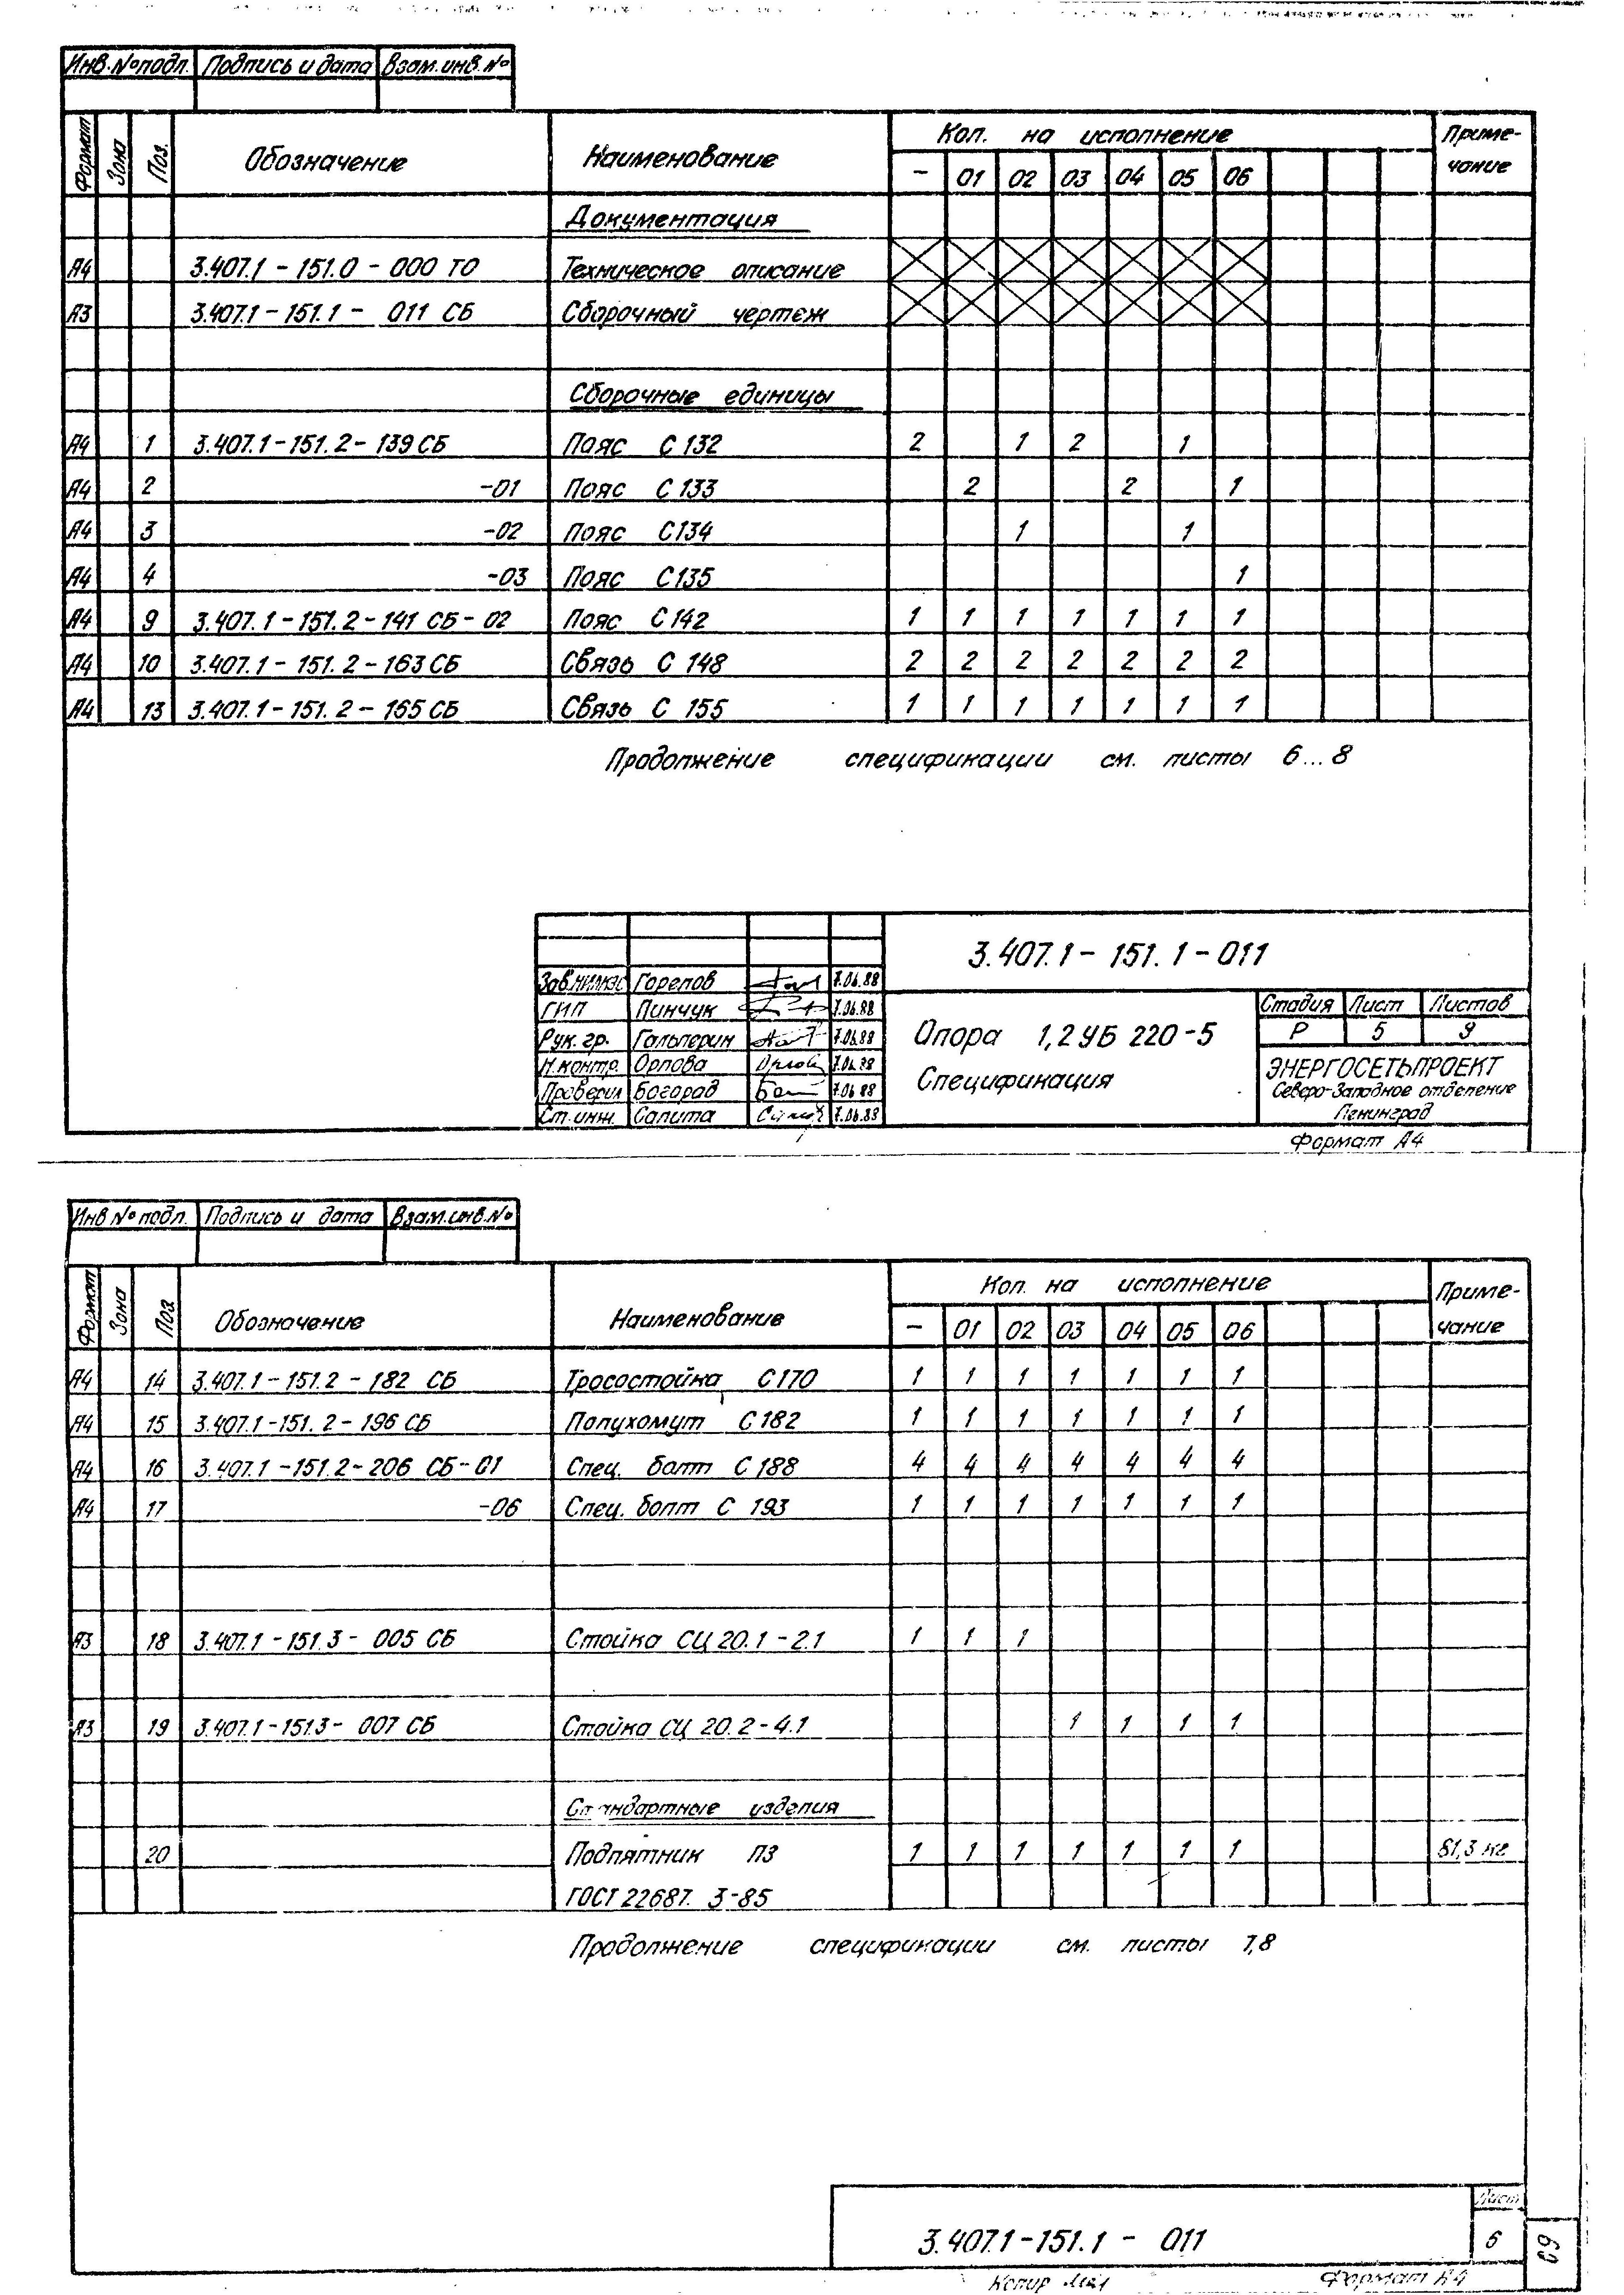 Инв.№подл. Подпись и дата Взам.инв.№
Формат Зона Поз. Обозначение Наименование Кол. на исполнение Приме-
чание
– 01 02 03 04 05 06
Документация
А4 3.407.1-151.0-000 ТО Техническое описание
А3 3.407.1-151.1- 011 СБ Сборочный чертеж
Сборочные единицы
А4 1 3.407.1-151.2-139 СБ Пояс С 132 2 1 2 1
А4 2 -01 Пояс С 133 2 2 1
А4 3 -02 Пояс С134 1 1
А4 4 -03 Пояс С135 1
А4 9 3.407.1-151.2-141 СБ-02 Пояс С 142 1 1 1 1 1 1 1
А4 10 3.407.1-151.2-163 СБ Связь С 148 2 2 2 2 2 2 2
А4 13 3.407.1-151.2-165 СБ Связь С 155 1 1 1 1 1 1 1
Продолжение спецификации см. листы 6...8
3.407.1-151.1-011
Горелов 7.06.88
ГИП Пинчук 7.06.88
Рук. гр. Гальперин 7.06.88
Н.контр. Орлова 7.06.88
Проверил Богорад 7.06.88
Ст.инж. Салита 7.06.88
Опора 1,2УБ 220-5
Спецификация
Стадия Лист Листов
Р 5 9
ЭНЕРГОСЕТЬПРОЕКТ
Северо-Западное отделение
Ленинград
Формат А4
Инв №подл. Подпись и дата Взам.инв.№
Формат Зона Поз Обозначение Наименование Кол. на исполнение Приме-
чание
– 01 02 03 04 05 06
А4 14 3.407.1-151.2-182 СБ Тросостойка С170 1 1 1 1 1 1 1
А4 15 3.407.1-151.2-196 СБ Полухомут С 182 1 1 1 1 1 1 1
А4 16 3.407.1-151.2-206 СБ-01 Спец. болт С 188 4 4 4 4 4 4 4
А4 17 -06 Спец. болт С 193 1 1 1 1 1 1 1
А3 18 3.407.1-151.3-005 СБ Стойка СЦ 20.1-2.1 1 1 1
А3 19 3.407.1-151.3-007 СБ Стойка СЦ 20.2-4.1 1 1 1 1
Стандартные изделия
20 Подпятник П3 1 1 1 1 1 1 1 81,3 кг
ГОСТ 22687.3-85
Продолжение спецификации см. листы 7,8
3.407.1-151.1- 011
Лист
6
Формат А4
60